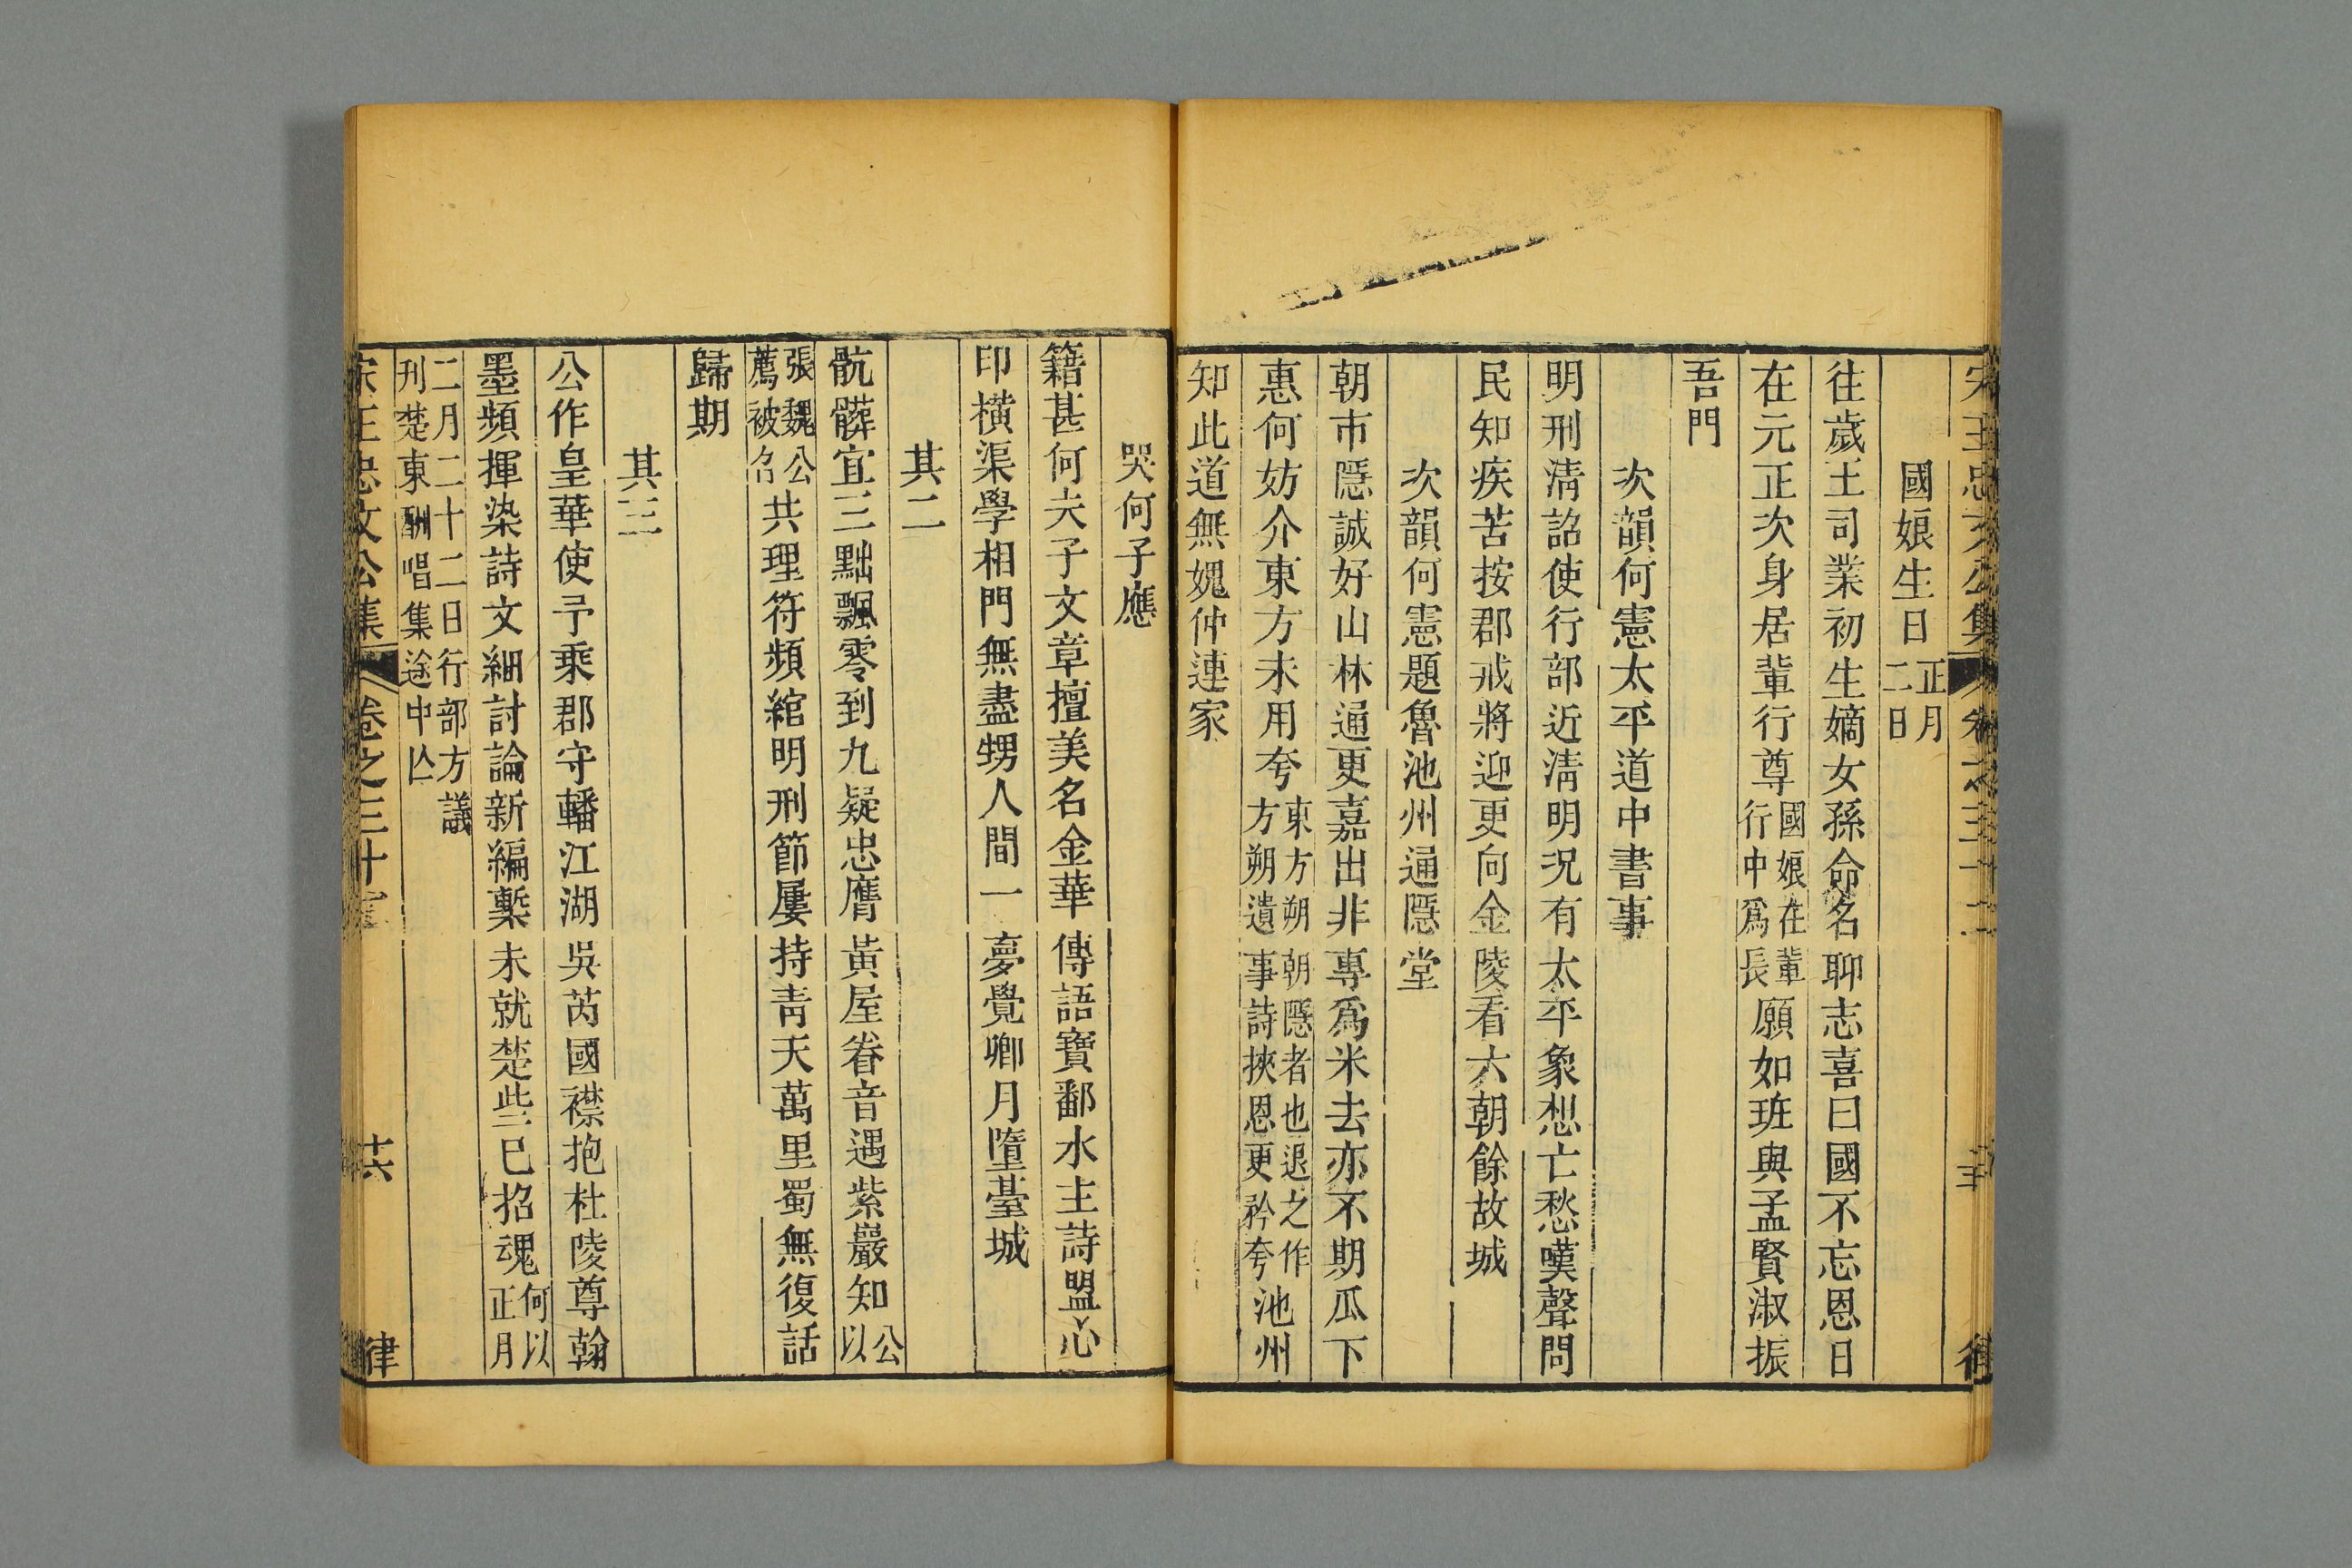 國娘生日 正月二日
往歲王司業初生嫡女孫命名聊志喜曰國不忘恩日
在元正次身居輩行尊 國娘在輩行中爲長 願如班與孟賢淑振
吾門
次韻何憲太平道中書事
明刑淸詔使行部近淸明况有太平象想亡愁嘆聲問
民知疾苦按郡戒將迎更向金陵看六朝餘故城
次韻何憲題魯池州通隱堂
朝市隱誠好山林通更嘉出非專爲米去亦不期瓜下
惠何妨介東方未用夸 東方朔朝隱者也退之作方朔遺事詩挾恩更矜夸 池州
知此道無媿仲連家
哭何子應
籍甚何夫子文章擅美名金華傳語寶鄱水主詩盟心
印橫渠學相門無盡甥人間一夢覺卿月墮臺城
其二
骯髒宜三黜飄零到九疑忠膺黃屋眷音遇紫巖知 公以
張魏公薦被召 共理符頻綰明刑節屢持靑天萬里蜀無復話
歸期
其三
公作皇華使予乘郡守轓江湖吳芮國襟抱杜陵尊翰
墨頻揮染詩文細討論新編槧未就楚些巳招魂 何以正月
二月二十二日行部方議刋楚東酬唱集途中亾
宋王忠文公集 卷之三十 十六 律